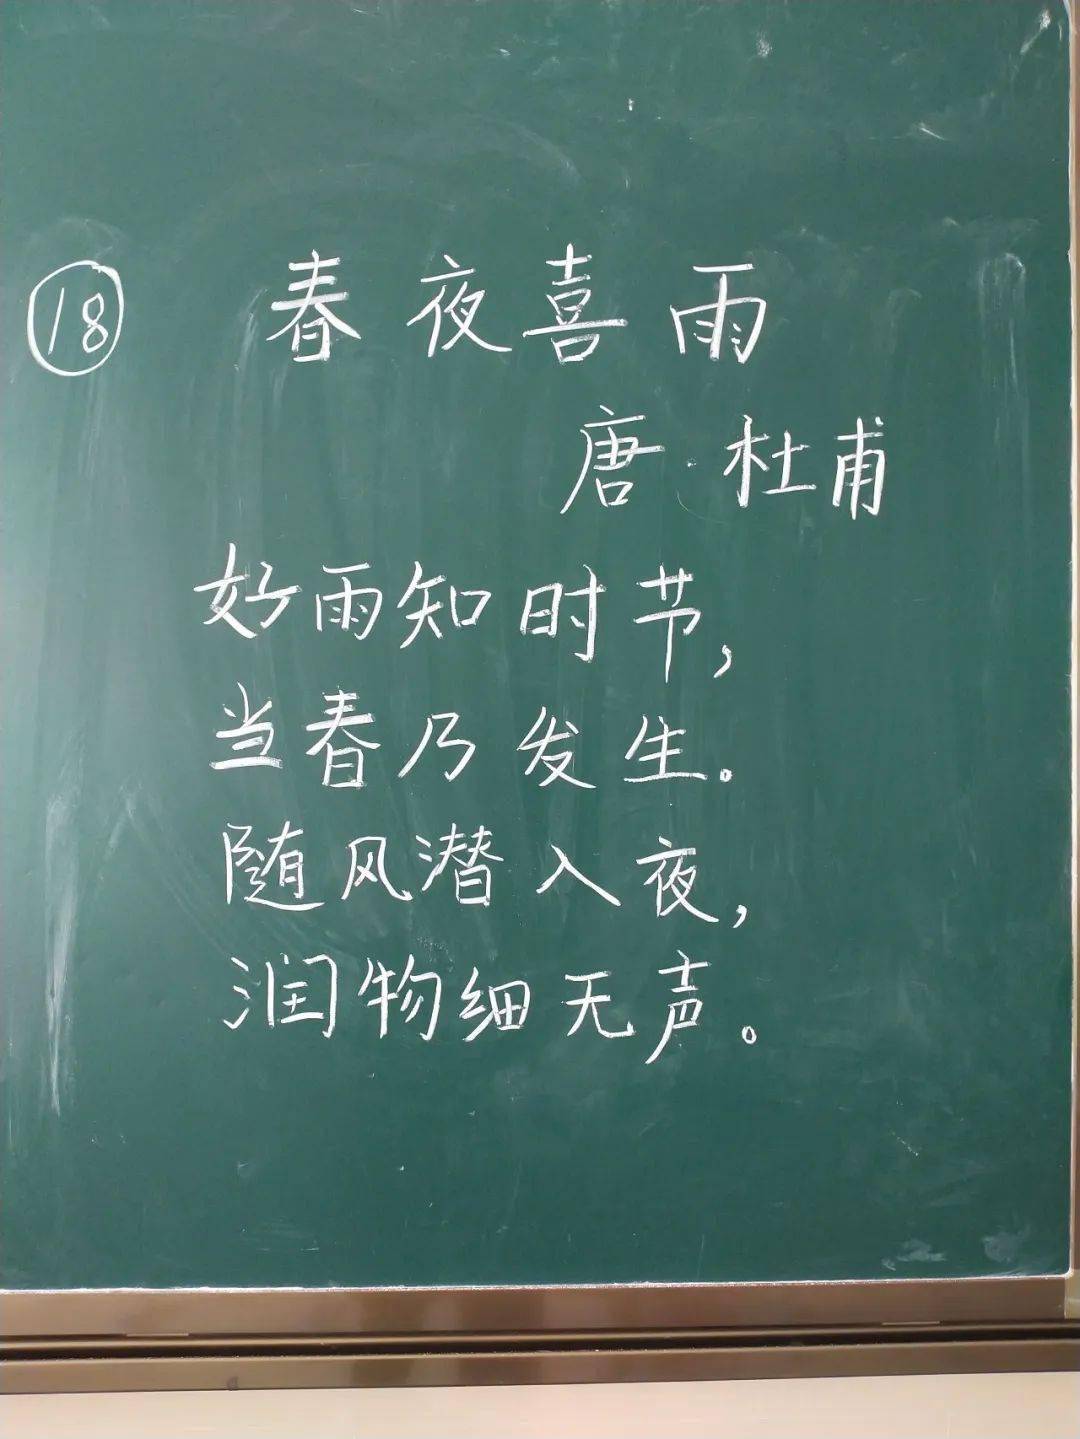 18 春夜喜雨
唐·杜甫
好雨知时节,
当春乃发生。
随风潜入夜,
润物细无声。